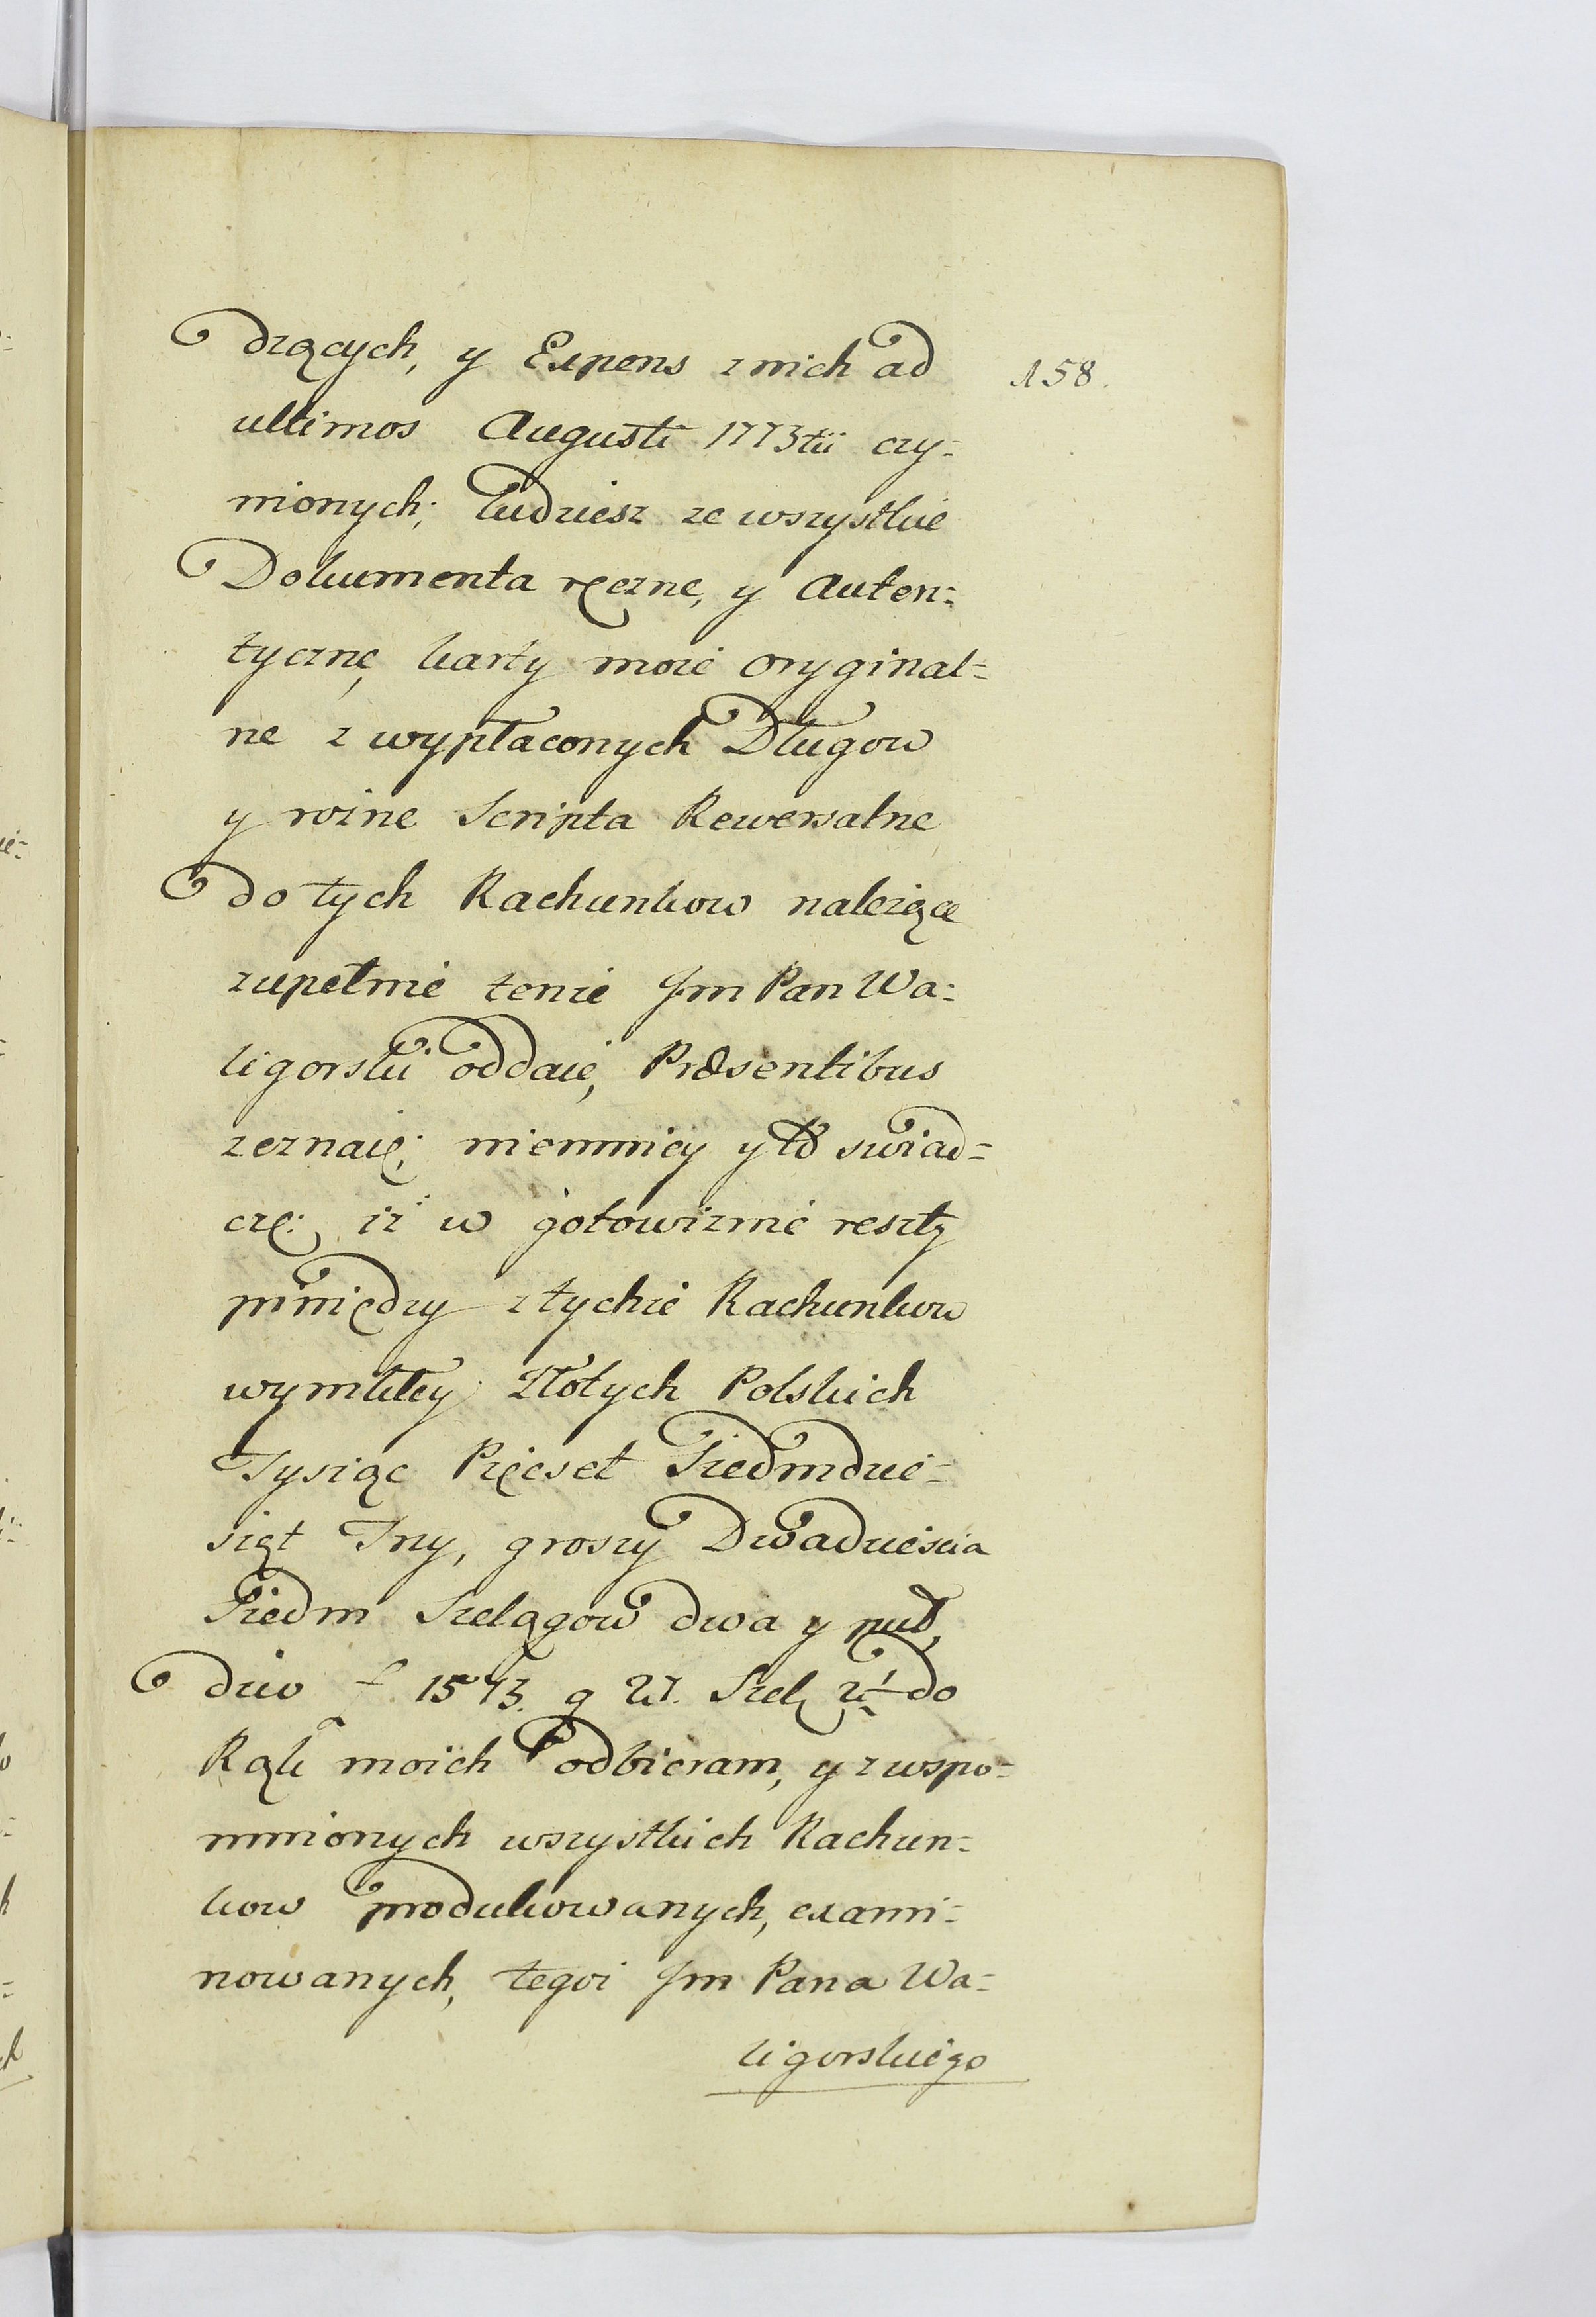 dzących, y Expens z nich ad
158.
ultimos Augusti 1773tii czy=
nionych; tudziesz ze wszystkie
Dokumenta ręczne, y Auten=
tycznę, karty moie oryginal=
ne z wypłaconych Długow
y rożne Scripta Rewersalne
do tych Rachunkow należące
zupełnie tenże Jm Pan Wa=
ligorski oddaie, Præsentibus
zeznaię; niemniey y to swiad=
czę: iż w gotowiznie resztę
pmiędzy z tychże Rachunkow
wymkłey Złotych Polskich
Tysiąc Pięcset Siedmdzie=
siąt Trzy, groszy Dwadzieścia
Siedm Szelągow dwa y puł,
dico f 1573. g 27. Szel 2½ do
Rąk moich odbieram, y z wspo=
mnionych wszystkich Rachun=
kow produkowanych, exami=
nowanych, tegoż Jm Pana Wa=
ligorskiego